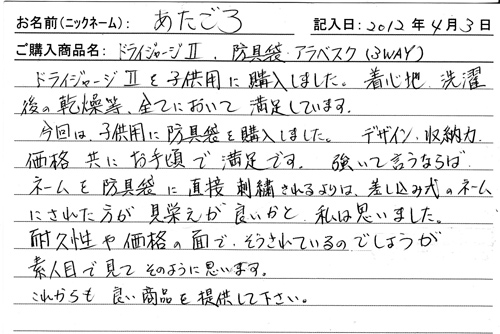 お名前(ニックネーム): あたごろ 記入日: 2012年 4月 3日
ご購入商品名: ドライジャージⅡ、防具袋・アラベスク(3WAY)
ドライジャージⅡを子供用に購入しました。着心地、洗濯
後の乾燥等、全てにおいて満足しています。
今回は、子供用に防具袋を購入しました。 デザイン・収納力
価格 共に お手頃で満足です。 強いて言うならば
ネームを防具袋に直接 刺繍されるよりは、差し込み式のネーム
にされた方が 見栄えが良いかと 私は思いました。
耐久性や価格の面で、そうされているのでしょうが
素人目で見て そのように思います。
これからも 良い商品を提供して下さい。